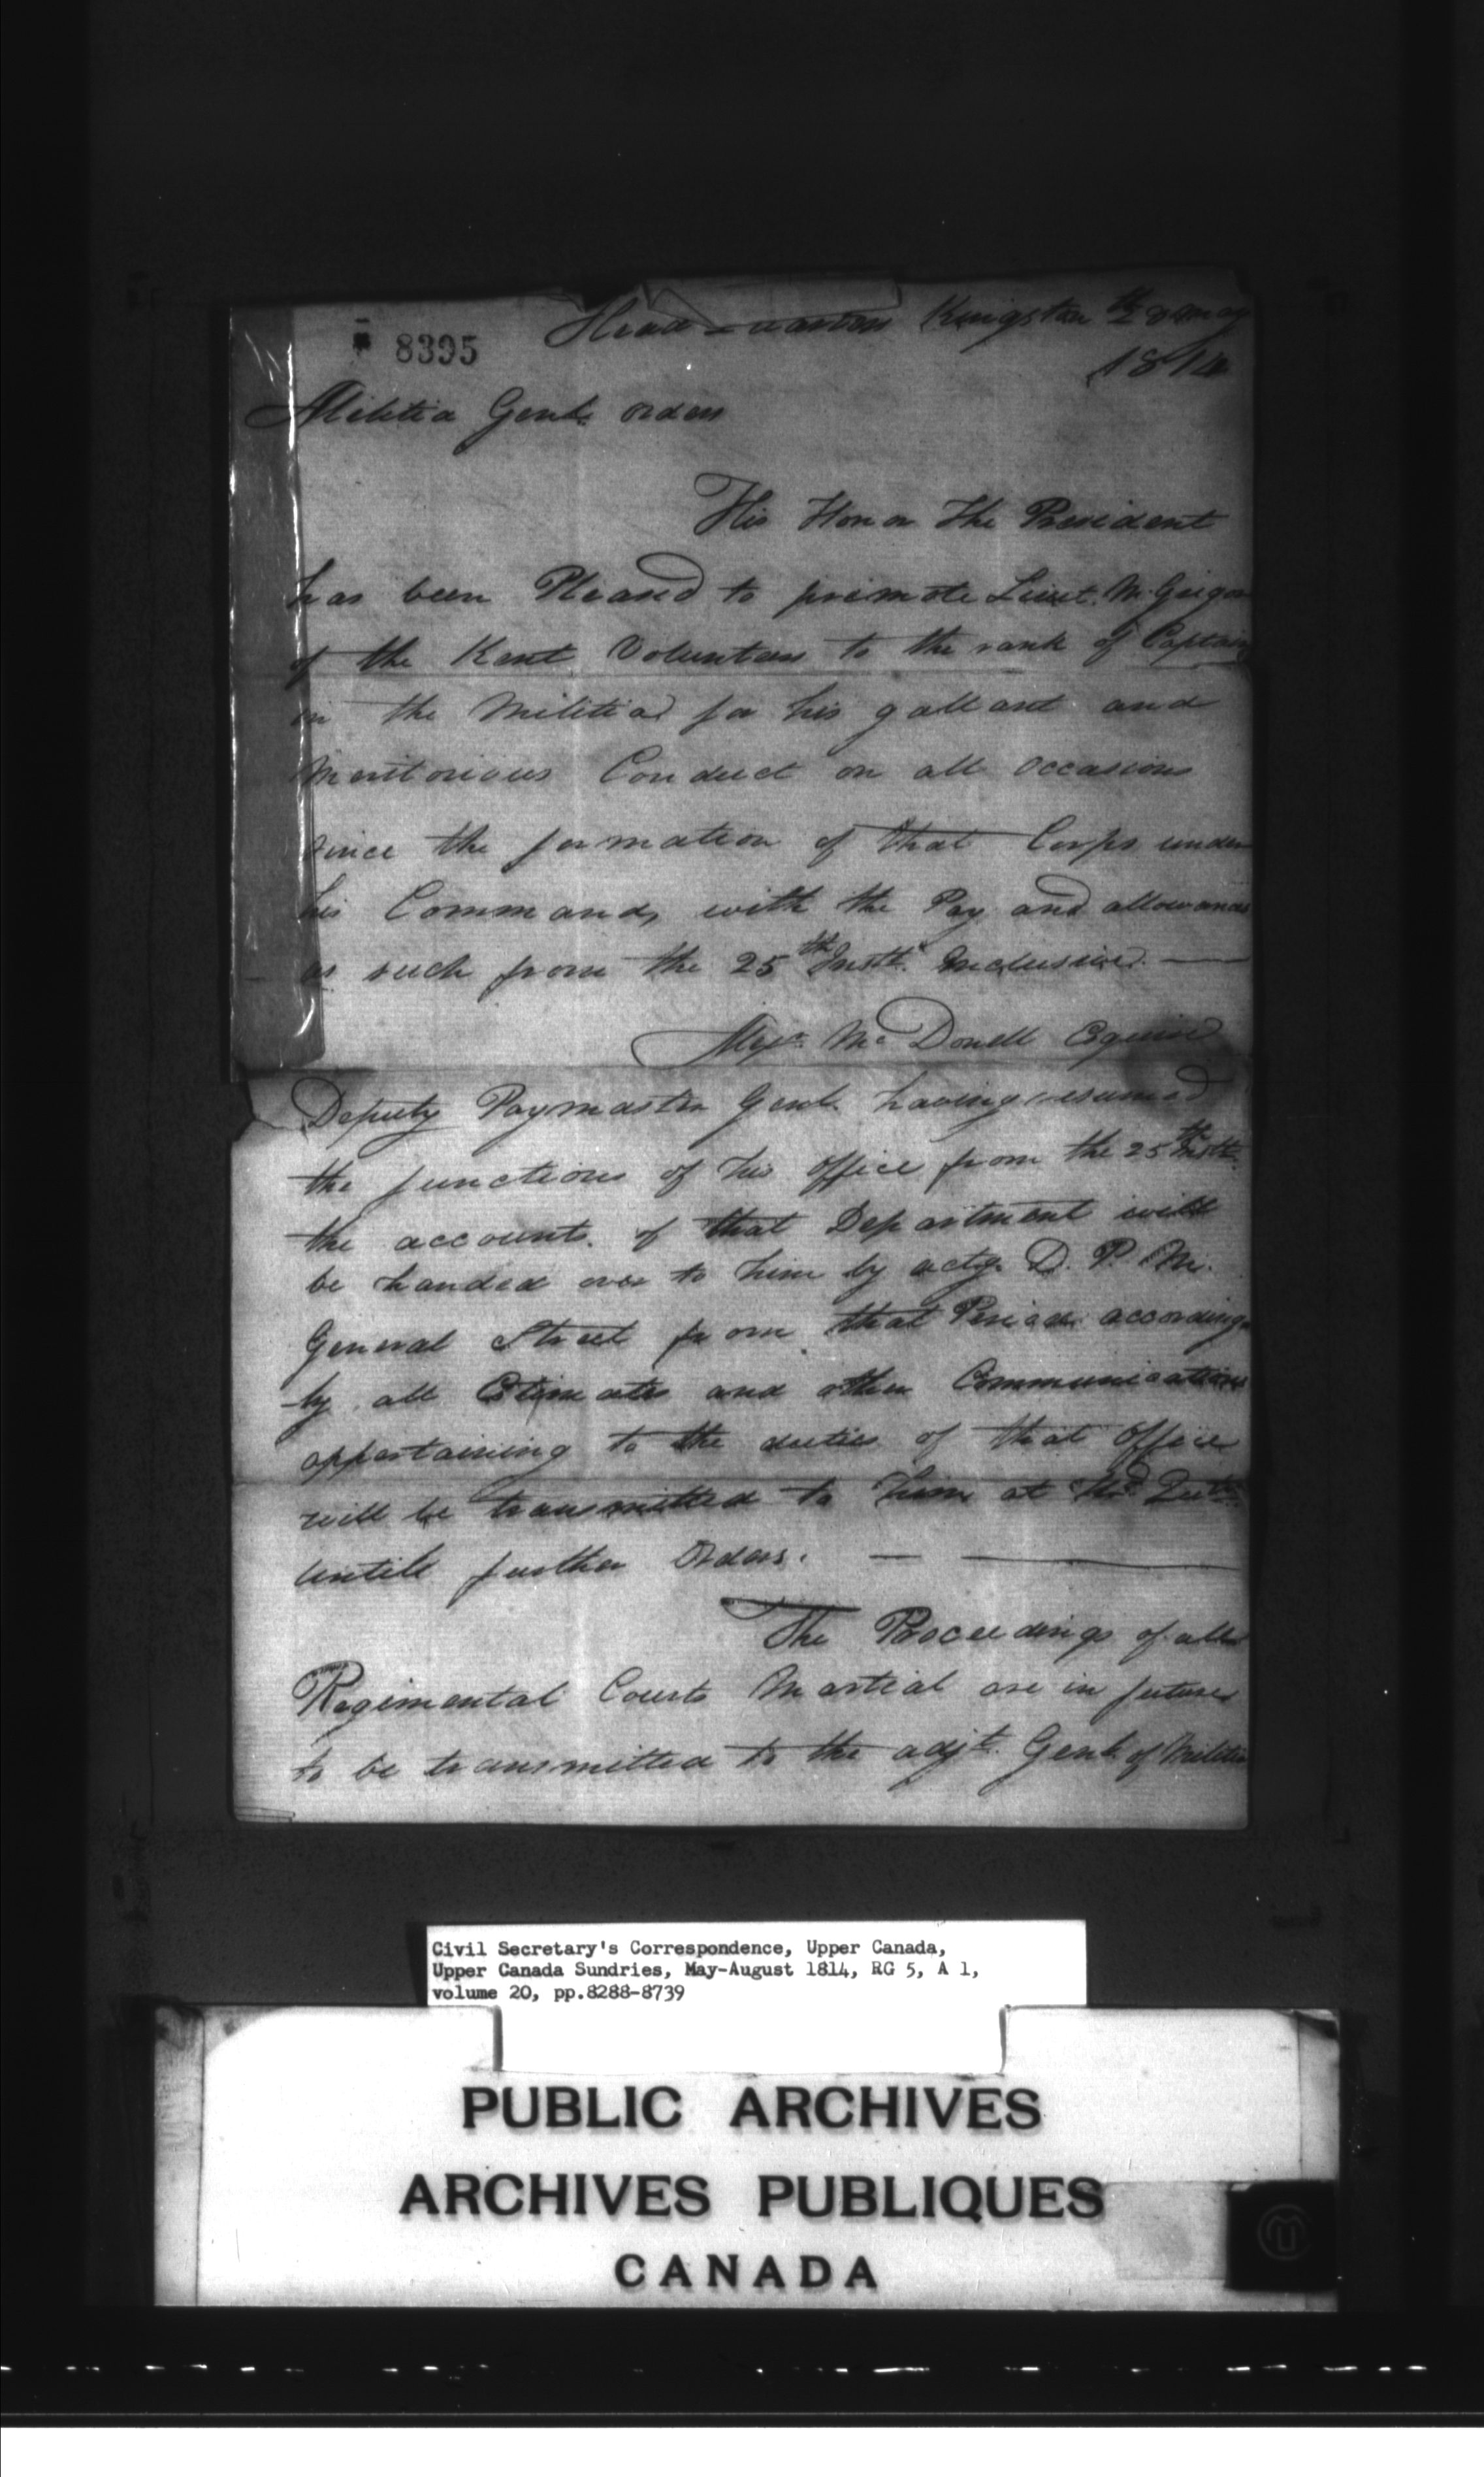 8395
Head Quarters Kingston 28 May
1814
Militia Genl. orders
His Honor The President
has been Pleased to promote Lieut. McGrigor
of the Kent Volunteers to the rank of Captain
in the Militia for his gallant and
Meritorious Conduct on all occasions
since the formation of that Corps under
his Command, with the Pay and allowances
as such from the 25th Instt. Inclusive. —
Alexr. McDonell Esquire
Deputy Paymaster Genl. having resumed
the functions of his office from the 25th Instt.
the accounts of that Department will
be handed over to him by actg. D. P. M.
General Street from that Period according
-ly all Estimates and other Communications
appertaining to the duties of that Office
will be transmitted to him at Hd. Qutrs.
until further Orders. — —
The Proceedings of all
Regimental Courts Martial are in future
to be transmitted to the adjt. Genl. of Militia
Civil Secretary's Correspondence, Upper Canada,
Upper Canada Sundries, May-August 1814, RG 5, A 1,
volume 20, pp.8288-8739
PUBLIC ARCHIVES
ARCHIVES PUBLIQUES
CANADA